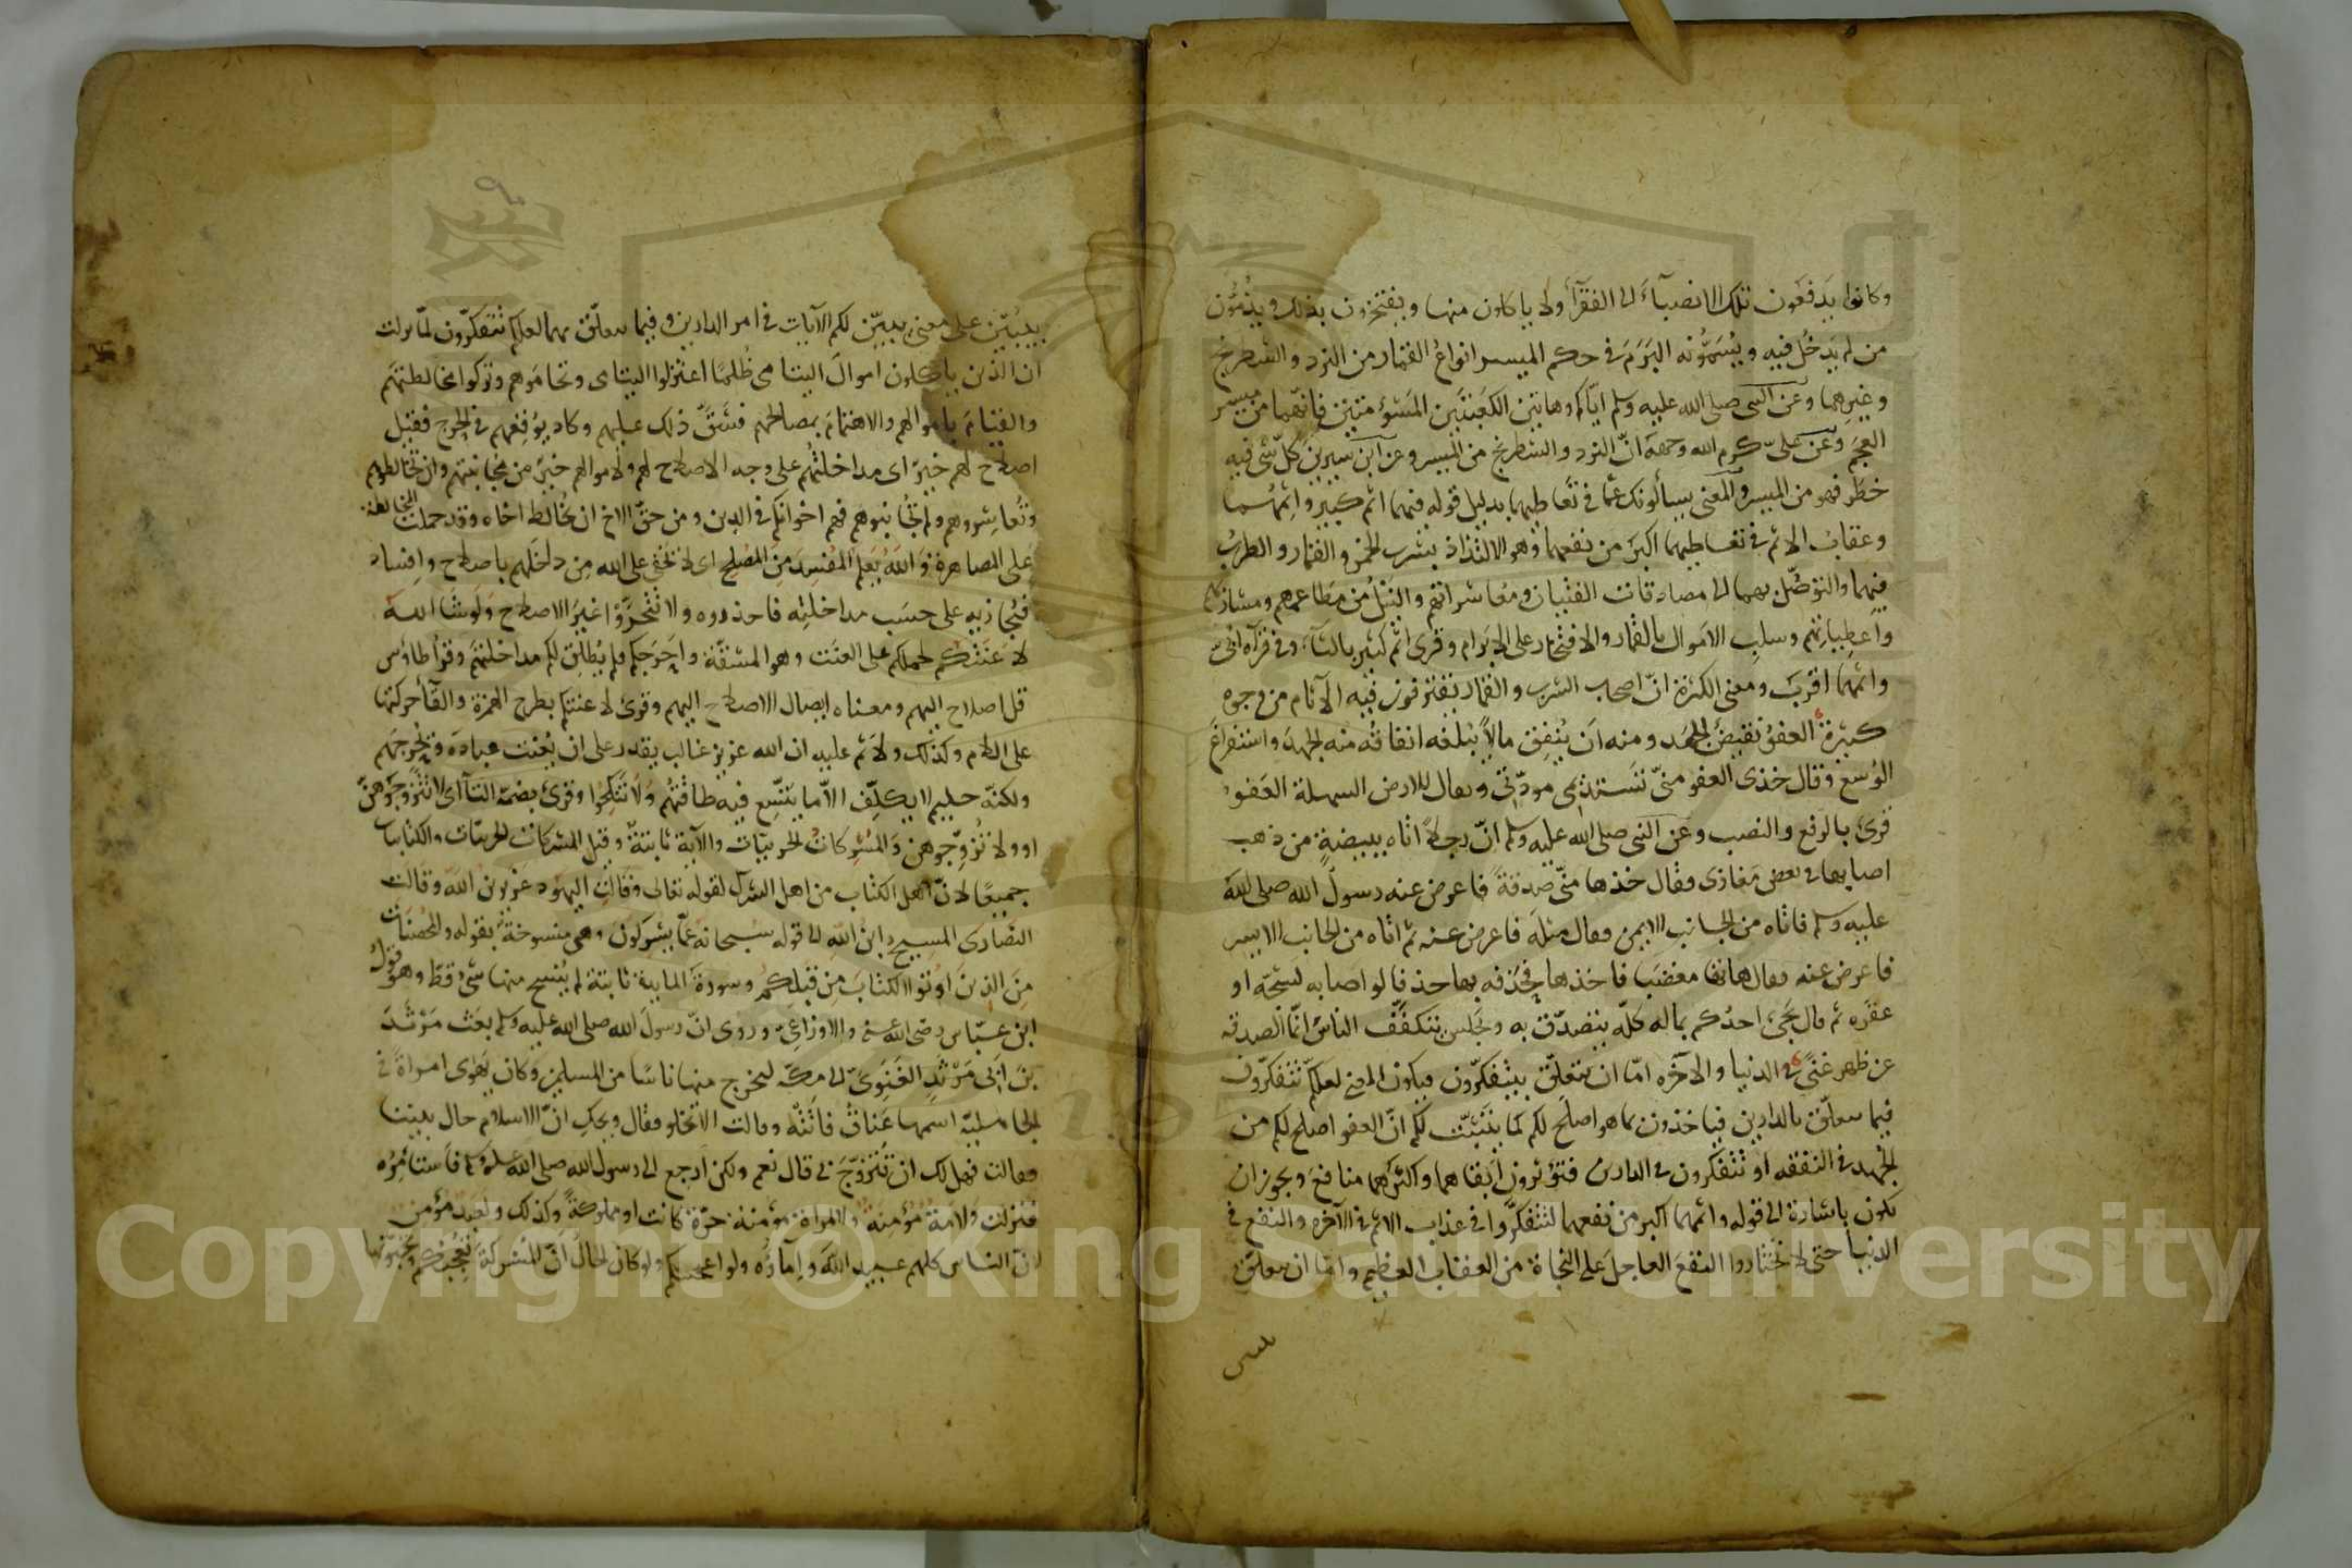 وكانوا يَدفعَون تلك الانصبآءَ الى الفقرآء ولا ياكلون منها ويفتخرون بذلك ويذمّون
من لم يَدخُل فيه ويُسَمُّونه البَرَمَ وفى حكم الميسر انواعُ القمار من النرد والشطرنج
وغيرهما وعن النبى صلى الله عليه وسلم ايّاكم وهاتين الكعبتَين المَشؤمتين فانّهما من ميسر
العجم وعن علىّ كرم الله وجهه انّ النرد والشطرنج من الميسر وعن ابن سيرين كلّ شى فيه
خطر فهو من الميسر والمعنى يسألونك عمّا فى تعاطيهما بدليل قوله فيهما اثم كبير واثمهما
وعقاب الاثم فى تعاطيهما اكبر من نفعهما وهو الالتذاذ بشرب الخمر والقمار والطربُ
فيهما والتوصّل بهما الى مصادقات الفتيان ومعاشراتهم والنيل من مطاعمهم ومشاربهم
واعطياتهم وسلب الاموال بالقمار والافتخار على الابرام وقرى اثم كثير بالثآء وفى قرآة ابىّ
واثمهما اقرب ومعنى الكثرة انّ اصحاب الشرب والقمار يقترفون فيه الآثام من وجوه
كثيرة العفوُ نقيضُ الجهد ومنه اَن يُنفِق مالاً يبلغه انفاقُه منه الجهدَ واستفراغَ
الوُسع وقال خذى العفو منىّ تَستديمى مودّتى ويقال للارض السهلة العَفو
قرئ بالرفع والنصب وعن النبى صلى الله عليه وسلم انّ رجلاً اتاه ببيضةٍ من ذهب
اصابها فى بعض مغازى وقال خذها منّى صدقةً فاعرض عنه رسول الله صلى الله
عليه وسلم فاتاه من الجانب الايمن وقال مثلَه فاعرض عنه ثم اتاه من الجانب الايسر
فاعرض عنه فقال هاتها مغضَبا فاخذها فخذفه بها خذفا لو اصابه لشجّه او
عقره ثم قال يَجئ احدُكم بماله كلّه يتصدّق به ويَجلس يتكفّف الناسَ انّما الصدقه
عن ظهر غنىً فى الدنيا والآخره امّا ان يتعلّق بيتفكّرون فيكون المعنى لعلكم تتفكّرون
فيما يتعلّق بالدارين فياخذون بما هو اصلَح لكم كما بيّنت لكم انّ العفو اصلح لكم من
الجهد فى النفقه او تتفكرون فى الدارين فتؤثرون ابقاهما واكثرَهما منافعَ ويجوز ان
يكون باشارة الى قوله واثمهما اكبر من نفعهما لتتفكّروا فى عذاب الاثم فى الآخره والنفع فى
الدنيا حتى لا تختاروا النفعَ العاجلَ على النجاة من العقاب العظيم وامّا ان يتعلّق
يبيّن على معنى يبيّن لكم الآيات فى امر الدارين وفيما يتعلّق بهما لعلكم تتفكّرون لمّا نزلت
ان الذين ياكلون اموالَ اليتامى ظلمًا اعتزلوا اليتامى وتحامَوهم وتركوا مخالطتهم
والقيامَ باموالهم والاهتمامَ بمصالحهم فشَقَّ ذلك عليهم وكاد يوقعُهم فى الحرج فقيل
اصلاح لهم خيرٌ اى مداخلتُهم على وجه الاصلاح لهم ولاموالهم خيرٌ من مجانبتهم وان تخالطوهم
وتُعاشِروهم ولم تجانبوهم فهم اخوانكم فى الدين ومن حقّ الاخ ان يُخالط اخاه وقد حملت المخالطة
على المصاهرة وَاللهُ يَعلم المُفسِدَ مِنَ المُصلح اى لا يخفى على الله مِن داخَلَهم باصلاح وافساد
فيُجازيه على حسَب مداخلتِه فاحذروه ولا تتحرَّوا غيرَ الاصلاح وَلَو شَا الله
لاَعنَتَكُم لحملكم على العنَت وهو المشقّة واَحرَجَكم فلم يُطلِق لكم مداخلتَهم وقرأ طاؤس
قل اصلاح اليهم ومعناه ايصال الاصلاح اليهم وقرئ لا عنتكم بطرح الهمزة والقآء حركتها
على اللام وكذلك ولاثم عليه ان الله عزيز غالب يقدر على ان يُعنِت عبادَه ويُحرِجَهم
ولكنّه حليم لا يكلِّف الاّ ما يتّسِع فيه طاقتُهم وَلاَ تَنكِحُوا وقرئ بضمّ التآ اى لا تتزوّجوهنّ
او ولا تُزوّجوهن وَالمُشركاتُ الحربيّات والآية ثابتةٌ وقيل المشركات الحربيّات والكتابيات
جميعًا لانّ اهل الكتاب من اهل الشرك لقوله تعالى وقالت اليهود عُزيرٌ بن الله وقالت
النصارى المسيح ابنُ اللهِ الى قوله سُبحانه عمّا يشركون وهى منسوخةٌ بقوله والمحصَنات
مِنَ الذينَ اوتُوا الكتابَ مِن قبلكم وسورة المايدة ثابتة لم يُنسَخ منها شئ قطّ وهو قولُ
ابن عبّاس رضى الله عنه والاوزاعىّ وروى انّ رسولَ الله صلى الله عليه وسلم بعَث مَرثدَ
بنَ ابى مَرثَدٍ الغَنَوىَّ الى مكّه ليخرج منها ناسًا من المسلمين وكان يَهوى امراةً فى
الجاهليّة اسمها عَناقُ فاتَتْه وقالت الا تخلو فقال ويحكِ انّ الاسلام حال بيننا
فقالت فهل لك ان تتزوّجَ بى قال نعم ولكن ارجع الى رسول الله صلى الله عليه وسلم فاستأمِرُه
فنزلت وَلاَمَةٌ مُؤمِنةٌ ولامراة مؤمنة حرّة كانت او مملوكةً وكذلك ولعَبد مؤمن
لانّ الناس كلهم عبيد الله وامآؤه ولو اعجبتكم ولو كان الحال انّ المشركة تُعجِبكم وتحبّونها
Copyright © King Saud University